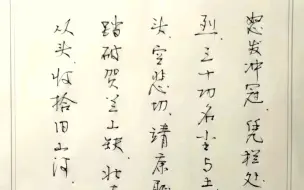 怒发冲冠 凭栏处
烈 三十功名尘与土
头 空悲切 靖康耻
踏破贺兰山缺 壮
从头 收拾旧山河